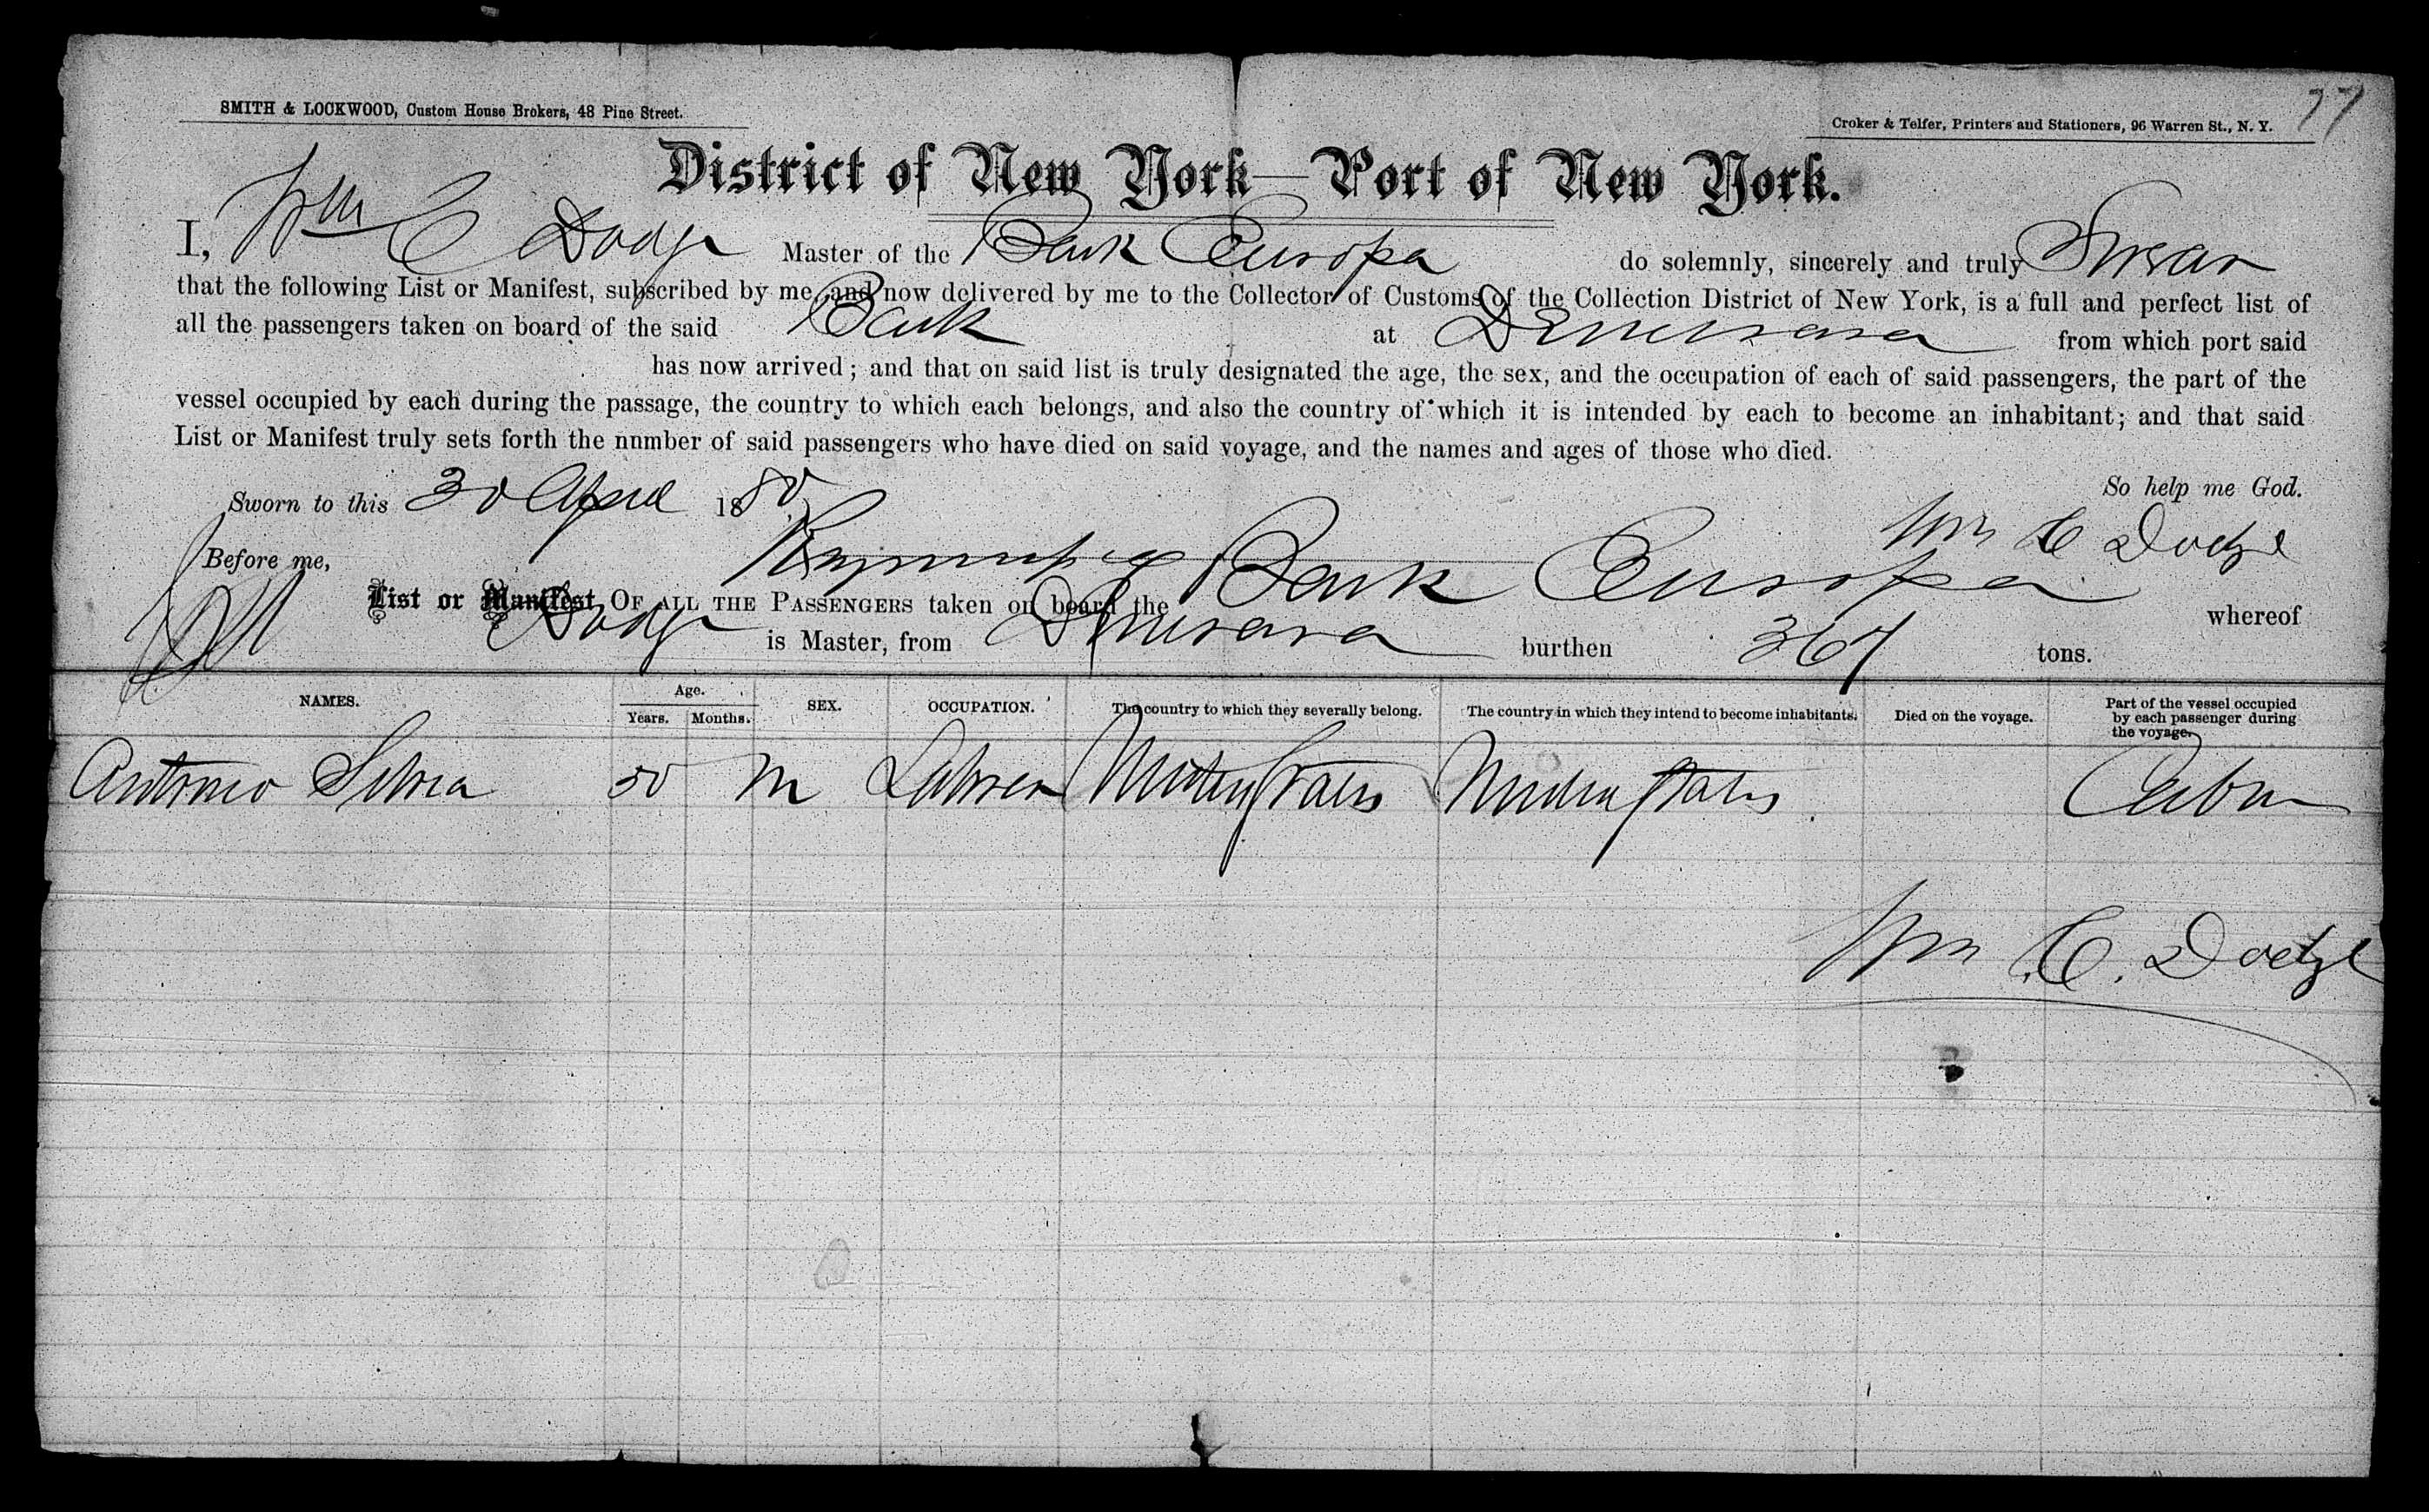 77
SMITH & LOCKWOOD, Custom House Brokers, 48 Pine Street.
Croker & Telfer, Printers and Stationers, 96 Warren St., N. Y.
District of New York—Port of New York.
I, Wm C Dodge Master of the Bark Europa do solemnly, sincerely and truly Swear
that the following List or Manifest, subscribed by me, and now delivered by me to the Collector of Customs of the Collection District of New York, is a full and perfect list of
all the passengers taken on board of the said Bark at Demerara from which port said
has now arrived; and that on said list is truly designated the age, the sex, and the occupation of each of said passengers, the part of the
vessel occupied by each during the passage, the country to which each belongs, and also the country of which it is intended by each to become an inhabitant; and that said
List or Manifest truly sets forth the nnmber of said passengers who have died on said voyage, and the names and ages of those who died.
So help me God.
Sworn to this 30 April 1880
Wm C Dodge
Before me,
List or Manifest OF ALL THE PASSENGERS taken on board the Bark Europa whereof
Dodge is Master, from Demerara burthen 367 tons.
NAMES. Age. Years. Months. SEX. OCCUPATION. The country to which they severally belong. The country in which they intend to become inhabitants. Died on the voyage. Part of the vessel occupied by each passenger during the voyage.
Antonio Silvia 50 M Laborer United States United States Cabin
Wm C. Dodge